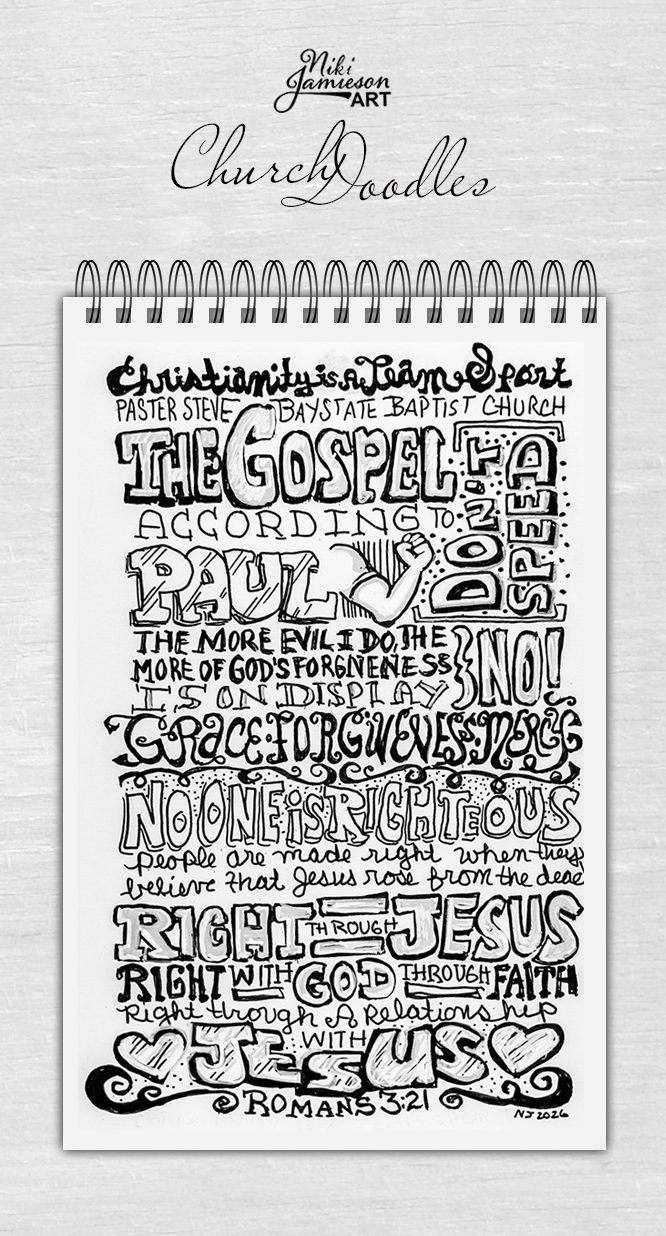 Niki
Jamieson
ART
Church Doodles
Christianity is A Team Sport
PASTER STEVE BAYSTATE BAPTIST CHURCH
THE GOSPEL
DON'T
SPEED
ACCORDING TO
PAUL
THE MORE EVIL I DO, THE
MORE OF GOD'S FORGIVENESS
IS ON DISPLAY
NO!
GRACE·FORGIVENESS·MERCY
NO ONE iS RIGHTEOUS
people are made right when they
believe that Jesus rose from the dead
RIGHT THROUGH JESUS
RIGHT WITH GOD THROUGH FAITH
Right through A Relationship
WITH
JESUS
ROMANS 3:21
NJ 2026